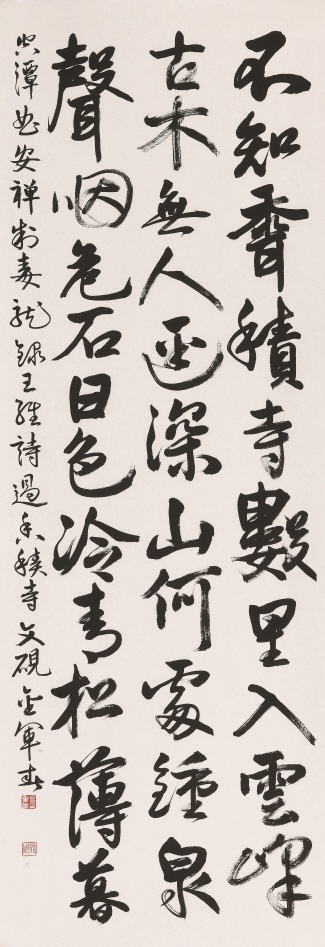 不知香積寺數里入雲峰
古木無人逕深山何處鍾泉
聲咽危石日色冷青松薄暮
空潭曲安禅制毒龙錄王維詩過香積寺文硯金軍书